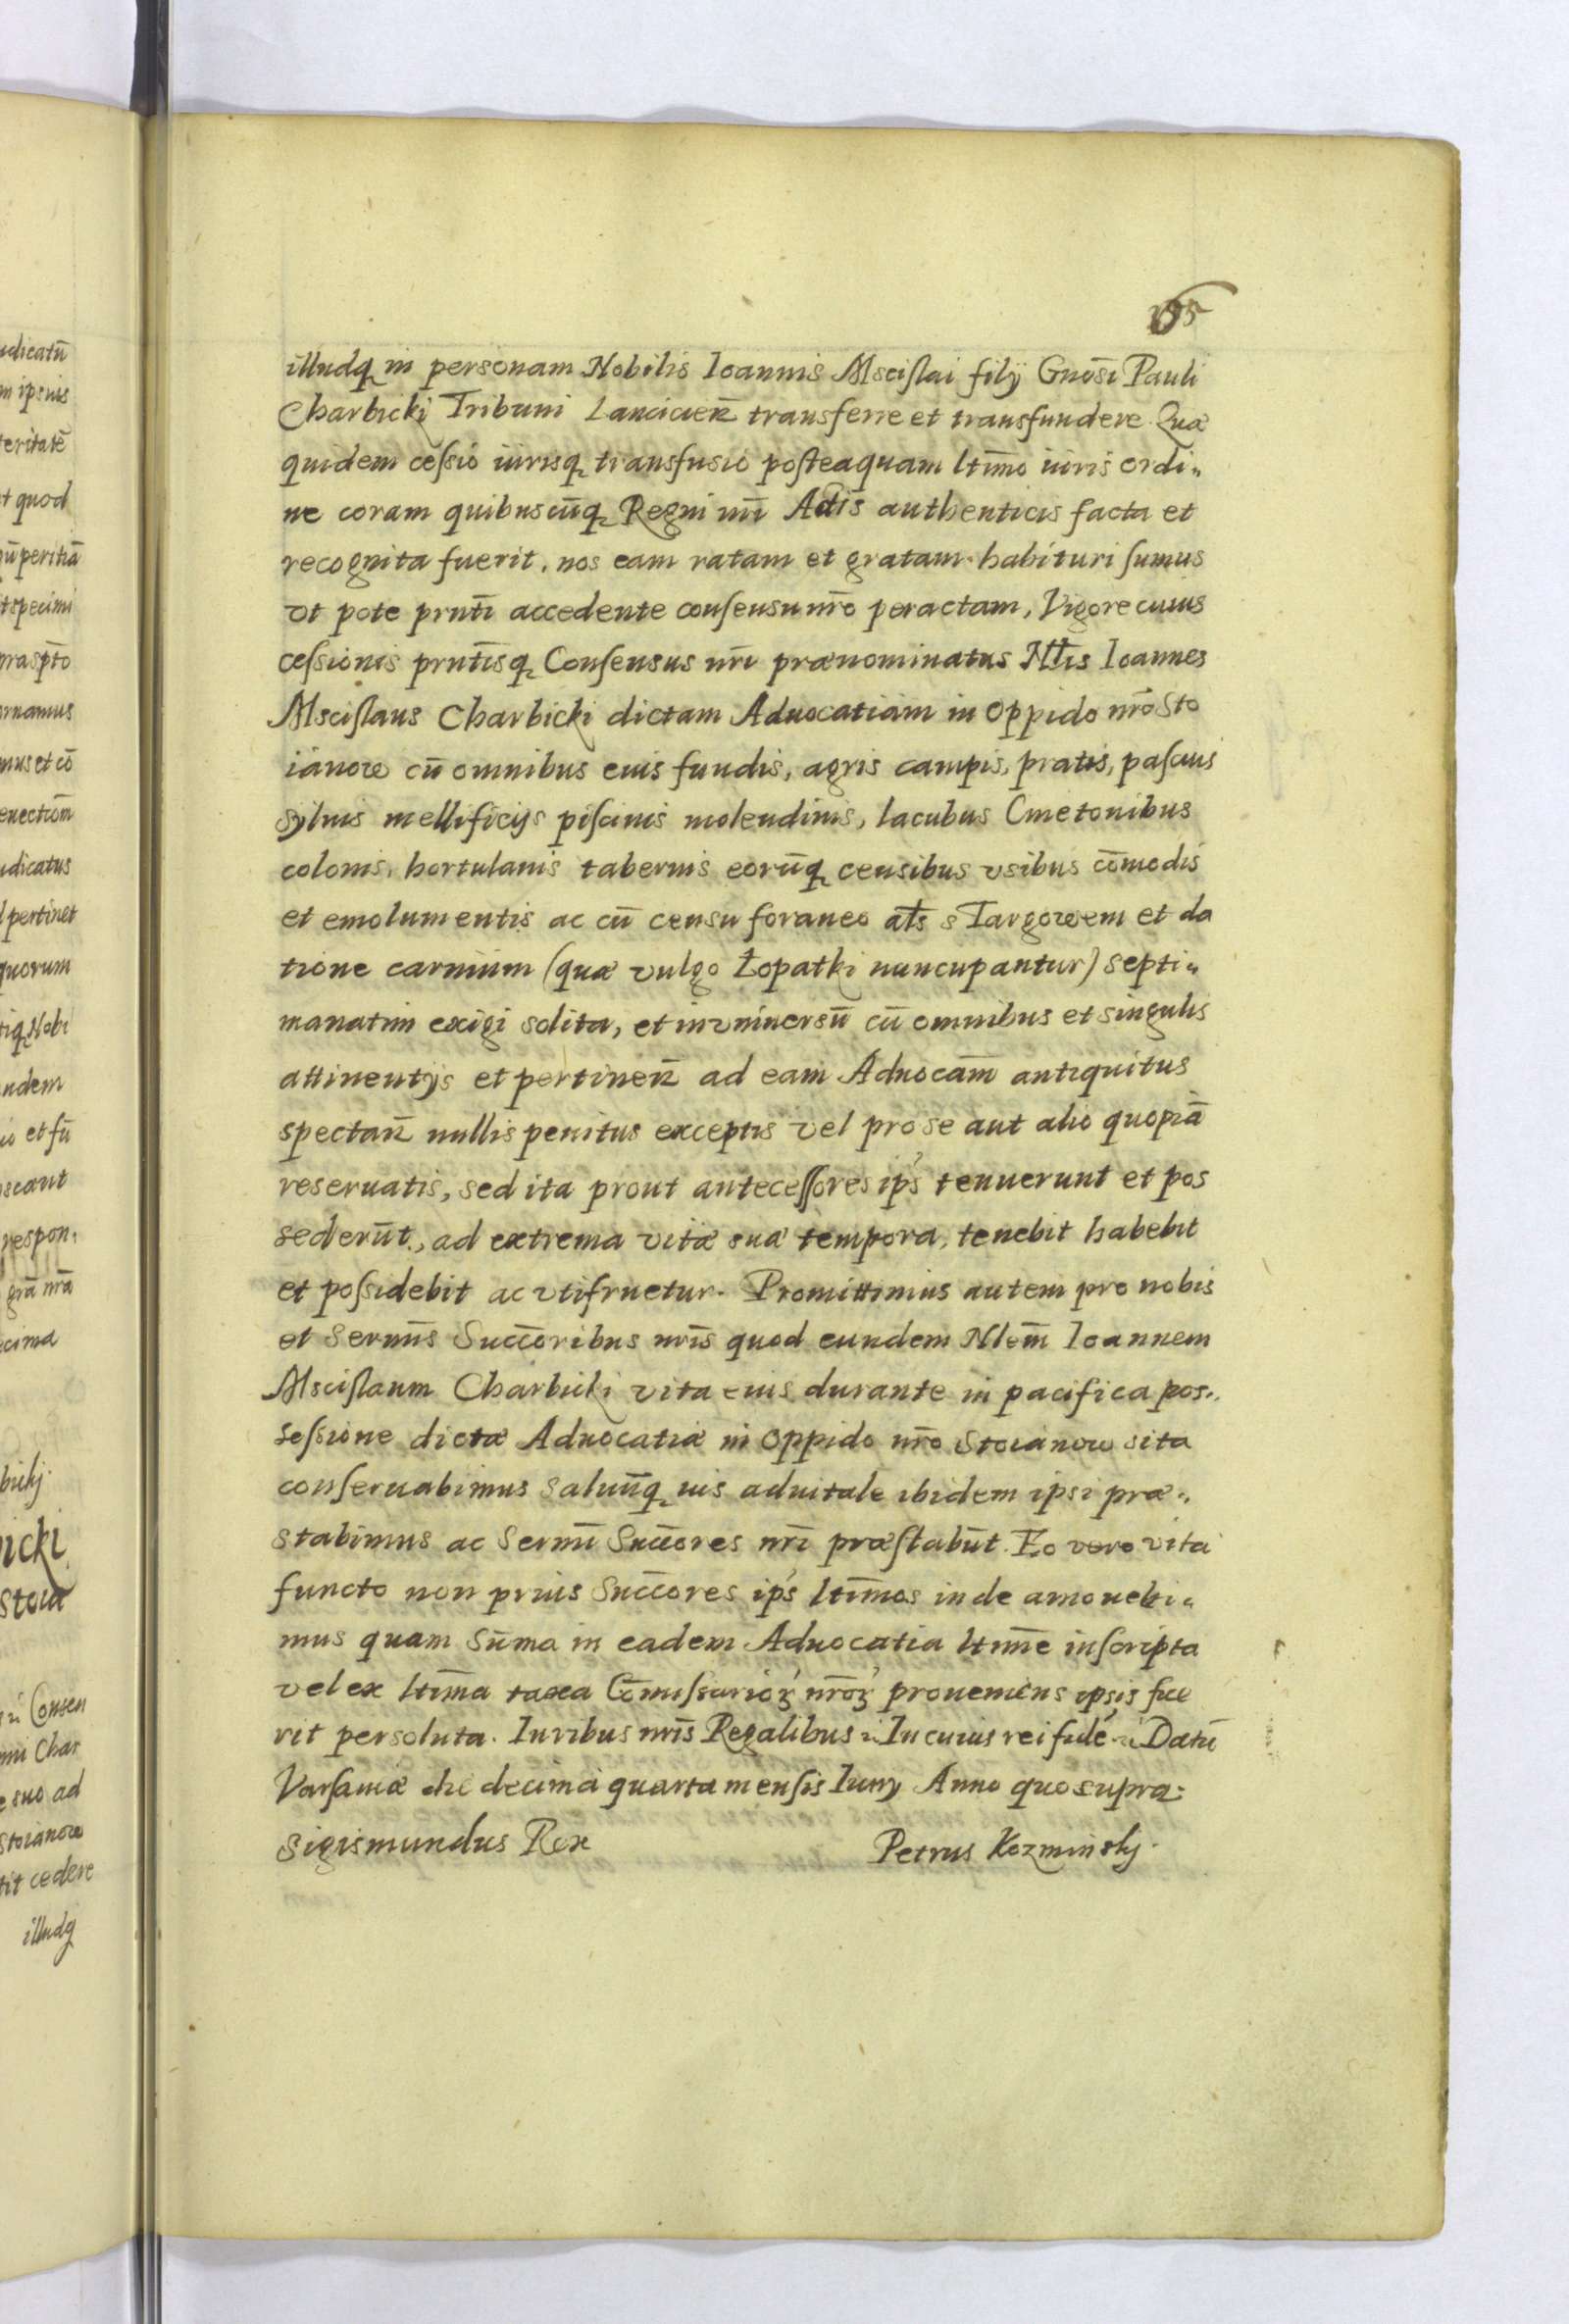 illudq in personam Nobilis Ioannis Mscislai filÿ Gnōsi Pauli
Charbicki Tribuni Lancicien transferre et transfundere. Quæ
quidem cessio iurisq transfusio posteaquam ltīmo iuris ordi„
ne coram quibuscūq Regni nrī Actis authenticis facta et
recognita fuerit, nos eam ratam et gratam habituri sumus
vt pote prntī accedente consensu nrō peractam, Vigore cuius
cessionis prntīsq Consensus nrī prænominatus Nlīs Ioannes
Mscislaus Charbicki dictam Aduocatiam in Oppido nrō Sto
ianow cū omnibus eius fundis, agris campis, pratis, pascuis
syluis mellificijs piscinis molendinis, lacubus Cmetonibus
colonis, hortulanis tabernis eorūq censibus vsibus cōmodis
et emolumentis ac cū censu foraneo als s Targowem et da
tione carnium (quæ vulgo Łopatki nuncupantur) septi„
manatim exigi solita, et in vniuersū cū omnibus et singulis
attinentijs et pertinen ad eam Aduocām antiquitus
spectan nullis penitus exceptis vel pro se aut alio quopiā
reseruatis, sed ita prout antecessores ips' tenuerunt et pos
sederūt, ad extrema vitæ suæ tempora, tenebit habebit
et possidebit ac vtifruetur. Promittimus autem pro nobis
et Sermīs Succōribus nrīs quod eundem Nlēm Ioannem
Mscislaum Charbicki vita eius durante in pacifica pos„
sessione dictæ Aduocatiæ in Oppido nrō Stoianow sita
conseruabimus saluūq ius aduitale ibidem ipsi præ„
stabimus ac Sermī Succōres nrī præstabūt. Eo vero vita
functo non prius Succōres ips' ltīmos inde amouebi„
mus quam sūma in eadem Aduocatia ltīme inscripta
vel ex ltīma taxa Cōmissarioꝝ nrōꝝ proueniens ipsis fue
rit persoluta. Iuribus nrīs Regalibus In cuius rei fidē Datū
Varsauiæ die decima quarta mensis Iunÿ Anno quo supra.
Sigismundus Rex Petrus Kozminskj.